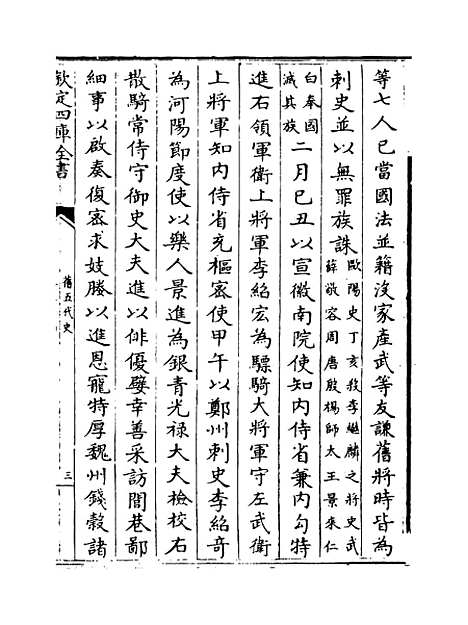 等七人已當國法並籍沒家產武等友謙舊將時皆為
刺史並以無罪族誅歐陽史丁亥殺李繼麟之將史武
薛敬容周唐殷楊師太王景來仁
白奉國
滅其族二月已丑以宣徽南院使知內侍省兼內勾特
進右領軍衛上將軍李紹宏為驃騎大將軍守左武衛
上將軍知內侍省充樞密使甲午以鄭州刺史李紹奇
為河陽節度使以樂人景進為銀青光祿大夫檢校右
散騎常侍守御史大夫進以俳優嬖幸善采訪閭巷鄙
細事以啟奏復密求妓媵以進恩寵特厚魏州錢穀諸
欽定四庫全書
舊五代史
三